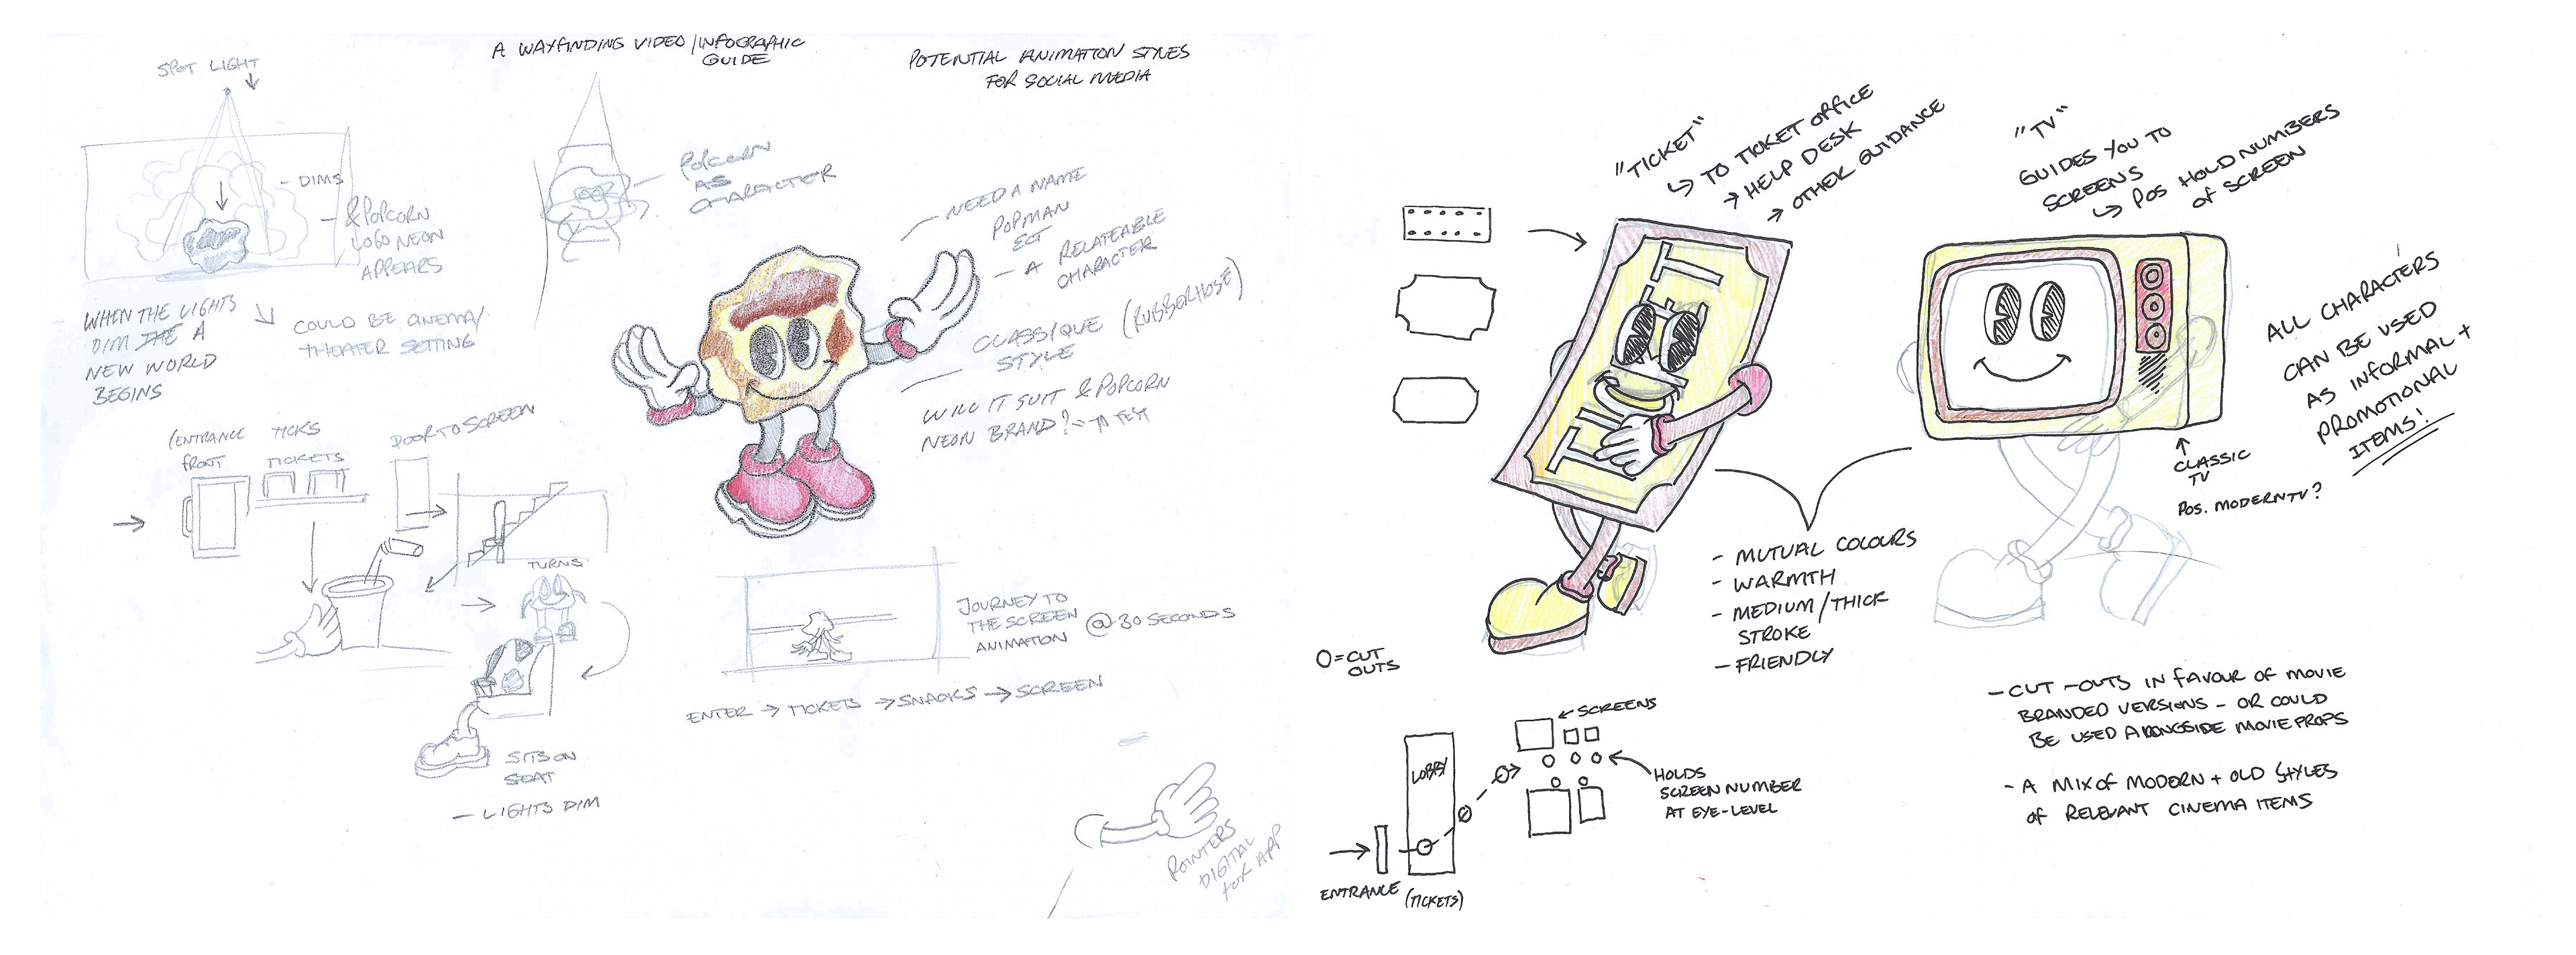 SPOT LIGHT
A WAYFINDING VIDEO/INFOGRAPHIC
GUIDE
POTENTIAL ANIMATION STYLES
FOR SOCIAL MEDIA
- DIMS
- &POPCORN
LOGO NEON
APPEARS
POPCORN
AS
CHARACTER
WHEN THE LIGHTS
DIM THE A
NEW WORLD
BEGINS
COULD BE CINEMA/
THEATER SETTING
- NEED A NAME
POPMAN
ECT
- A RELATEABLE
CHARACTER
CLASSIQUE (RUBBERHOSE)
STYLE
WILL IT SUIT &POPCORN
NEON BRAND? - TO TEST
(ENTRANCE
FRONT
TICKS
TICKETS
DOOR TO SCREEN
TURNS
SITS ON
SEAT
- LIGHTS DIM
JOURNEY TO
THE SCREEN
ANIMATION
@ 30 SECONDS
ENTER → TICKETS → SNACKS → SCREEN
POINTERS
DIGITAL
FOR APP
"TICKET"
↳ TO TICKET OFFICE
→ HELP DESK
→ OTHER GUIDANCE
"TV"
GUIDES YOU TO
SCREENS
↳ POS HOLD NUMBERS
OF SCREEN
TICKET
ALL CHARACTERS
CAN BE USED
AS INFORMAL +
PROMOTIONAL
ITEMS!
CLASSIC
TV
POS. MODERN TV?
- MUTUAL COLOURS
- WARMTH
- MEDIUM/THICK
STROKE
- FRIENDLY
O = CUT
OUTS
SCREENS
LOBBY
HOLDS
SCREEN NUMBER
AT EYE-LEVEL
ENTRANCE
(TICKETS)
- CUT-OUTS IN FAVOUR OF MOVIE
BRANDED VERSIONS - OR COULD
BE USED ALONGSIDE MOVIE PROPS
- A MIX OF MODERN + OLD STYLES
OF RELEVANT CINEMA ITEMS